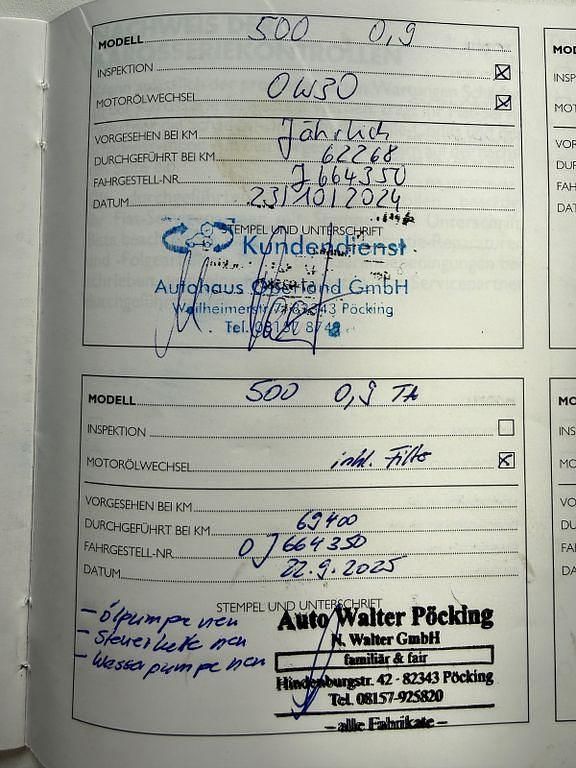 MODELL 500 0,9
INSPEKTION ☒
MOTORÖLWECHSEL 0W30 ☒
VORGESEHEN BEI KM Jährlich
DURCHGEFÜHRT BEI KM 62268
FAHRGESTELL-NR. J664350
DATUM 23/10/2024
STEMPEL UND UNTERSCHRIFT
Kundendienst
Autohaus Oberland GmbH
Weilheimerstr. 82343 Pöcking
Tel. 08157 8743
MODELL 500 0,9 TA
INSPEKTION ☐
MOTORÖLWECHSEL inkl. Filter ☒
VORGESEHEN BEI KM
DURCHGEFÜHRT BEI KM 69400
FAHRGESTELL-NR. 0J664350
DATUM 22.9.2025
STEMPEL UND UNTERSCHRIFT
- Ölpumpe neu
- Steuerkette neu
- Wasserpumpe neu
Auto Walter Pöcking
N. Walter GmbH
familiär & fair
Hindenburgstr. 42 · 82343 Pöcking
Tel. 08157-925820
– alle Fabrikate –
MOD
INSP
MOT
VOR
DUR
FAH
DAT
MO
INS
MC
VO
DU
FA
DA